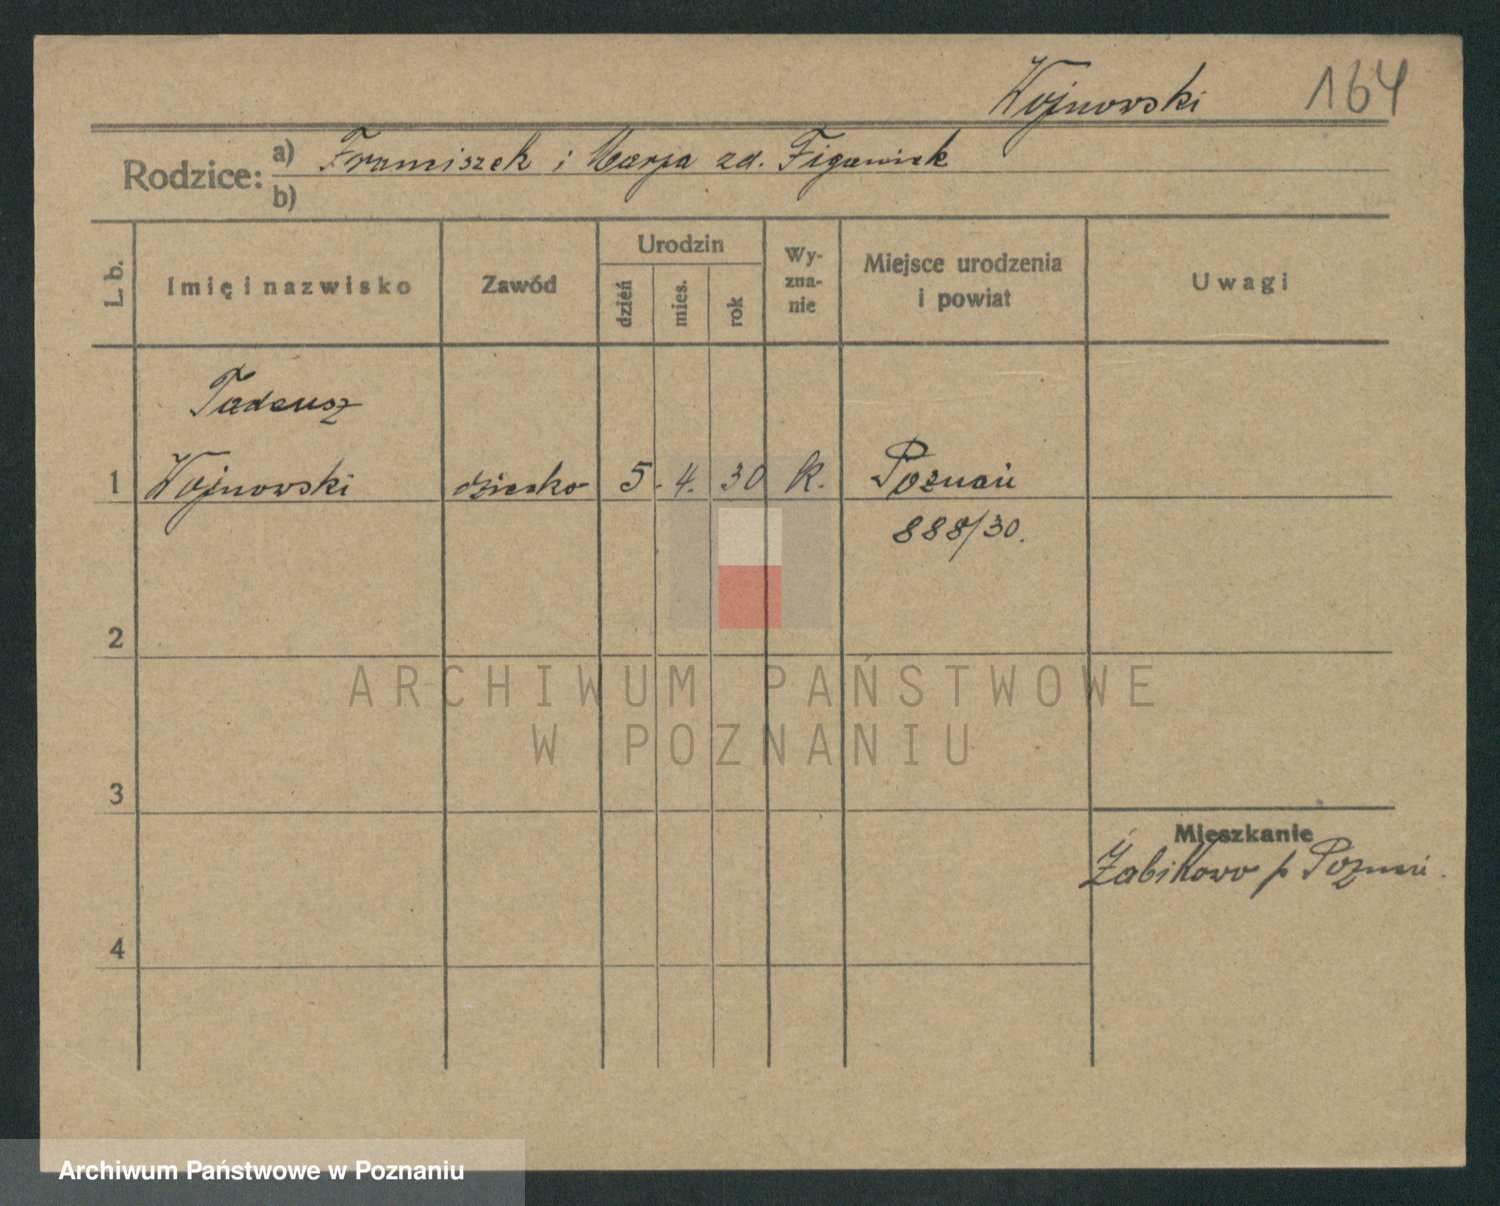 Wojnowski 164
Rodzice: a) Franciszek i Marja zd. Figawiak
b)
L. b. Imię i nazwisko Zawód Urodzin dzień mies. rok Wy-zna-nie Miejsce urodzenia i powiat Uwagi
Tadeusz
1 Wojnowski dziecko 5. 4. 30 k. Poznań
888/30.
2
ARCHIWUM PAŃSTWOWE
W POZNANIU
3
Mieszkanie
Żabikowo p Poznań.
4
Archiwum Państwowe w Poznaniu